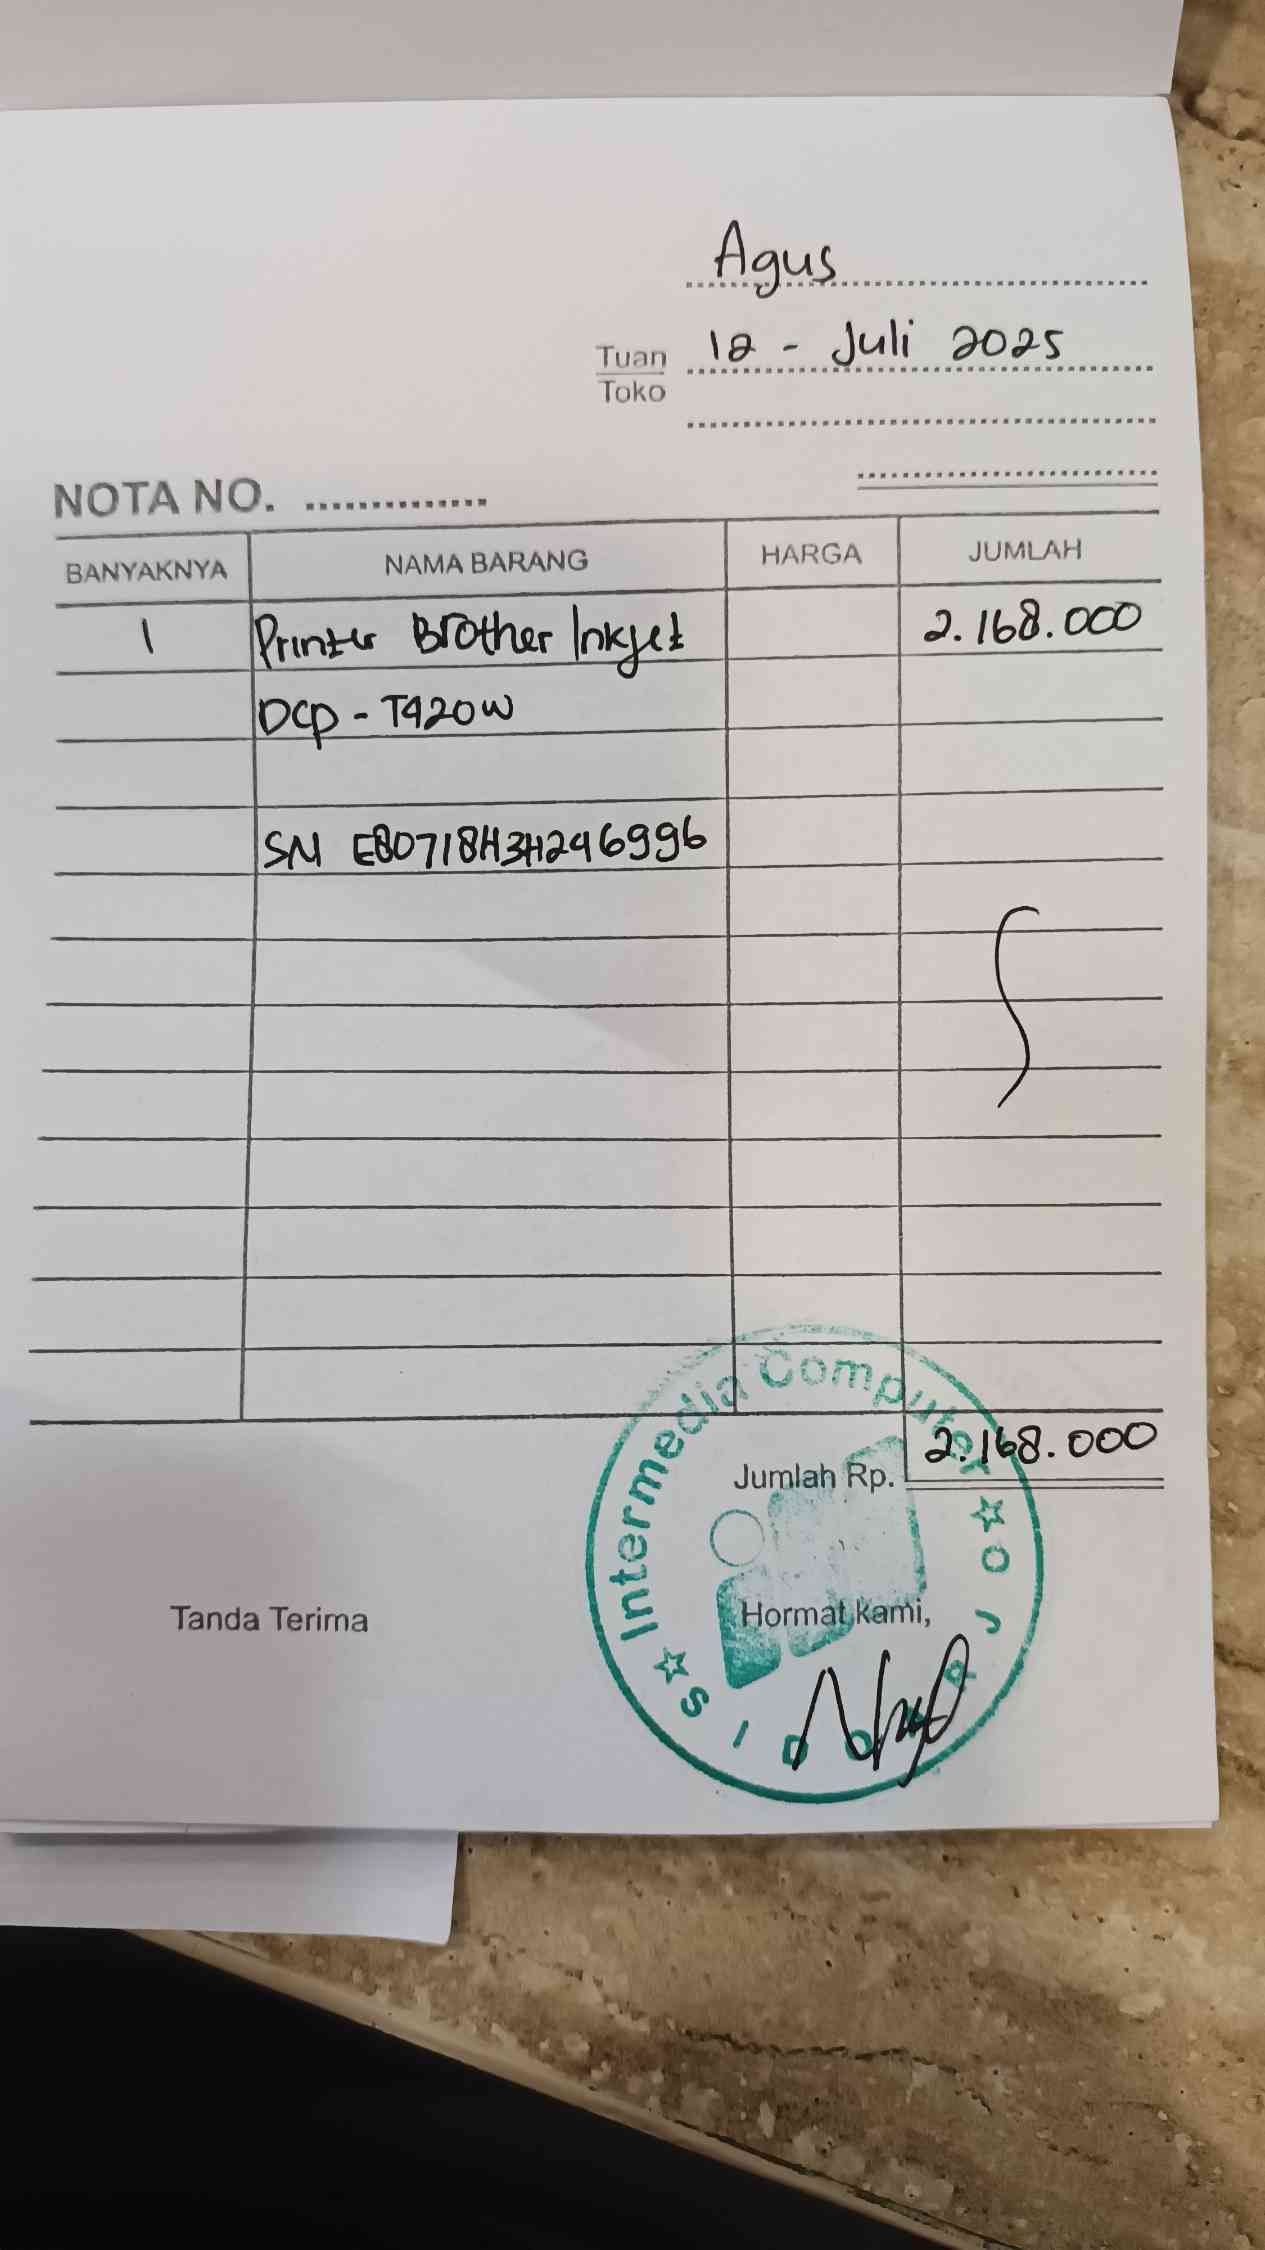 Agus
Tuan
Toko
12 - Juli 2025
NOTA NO.
BANYAKNYA NAMA BARANG HARGA JUMLAH
1 Printer Brother Inkjet 2.168.000
DCP - T420W
SN E80718H3H246996
Jumlah Rp. 2.168.000
Tanda Terima
Hormat kami,
Intermedia Computer
SIDOARJO